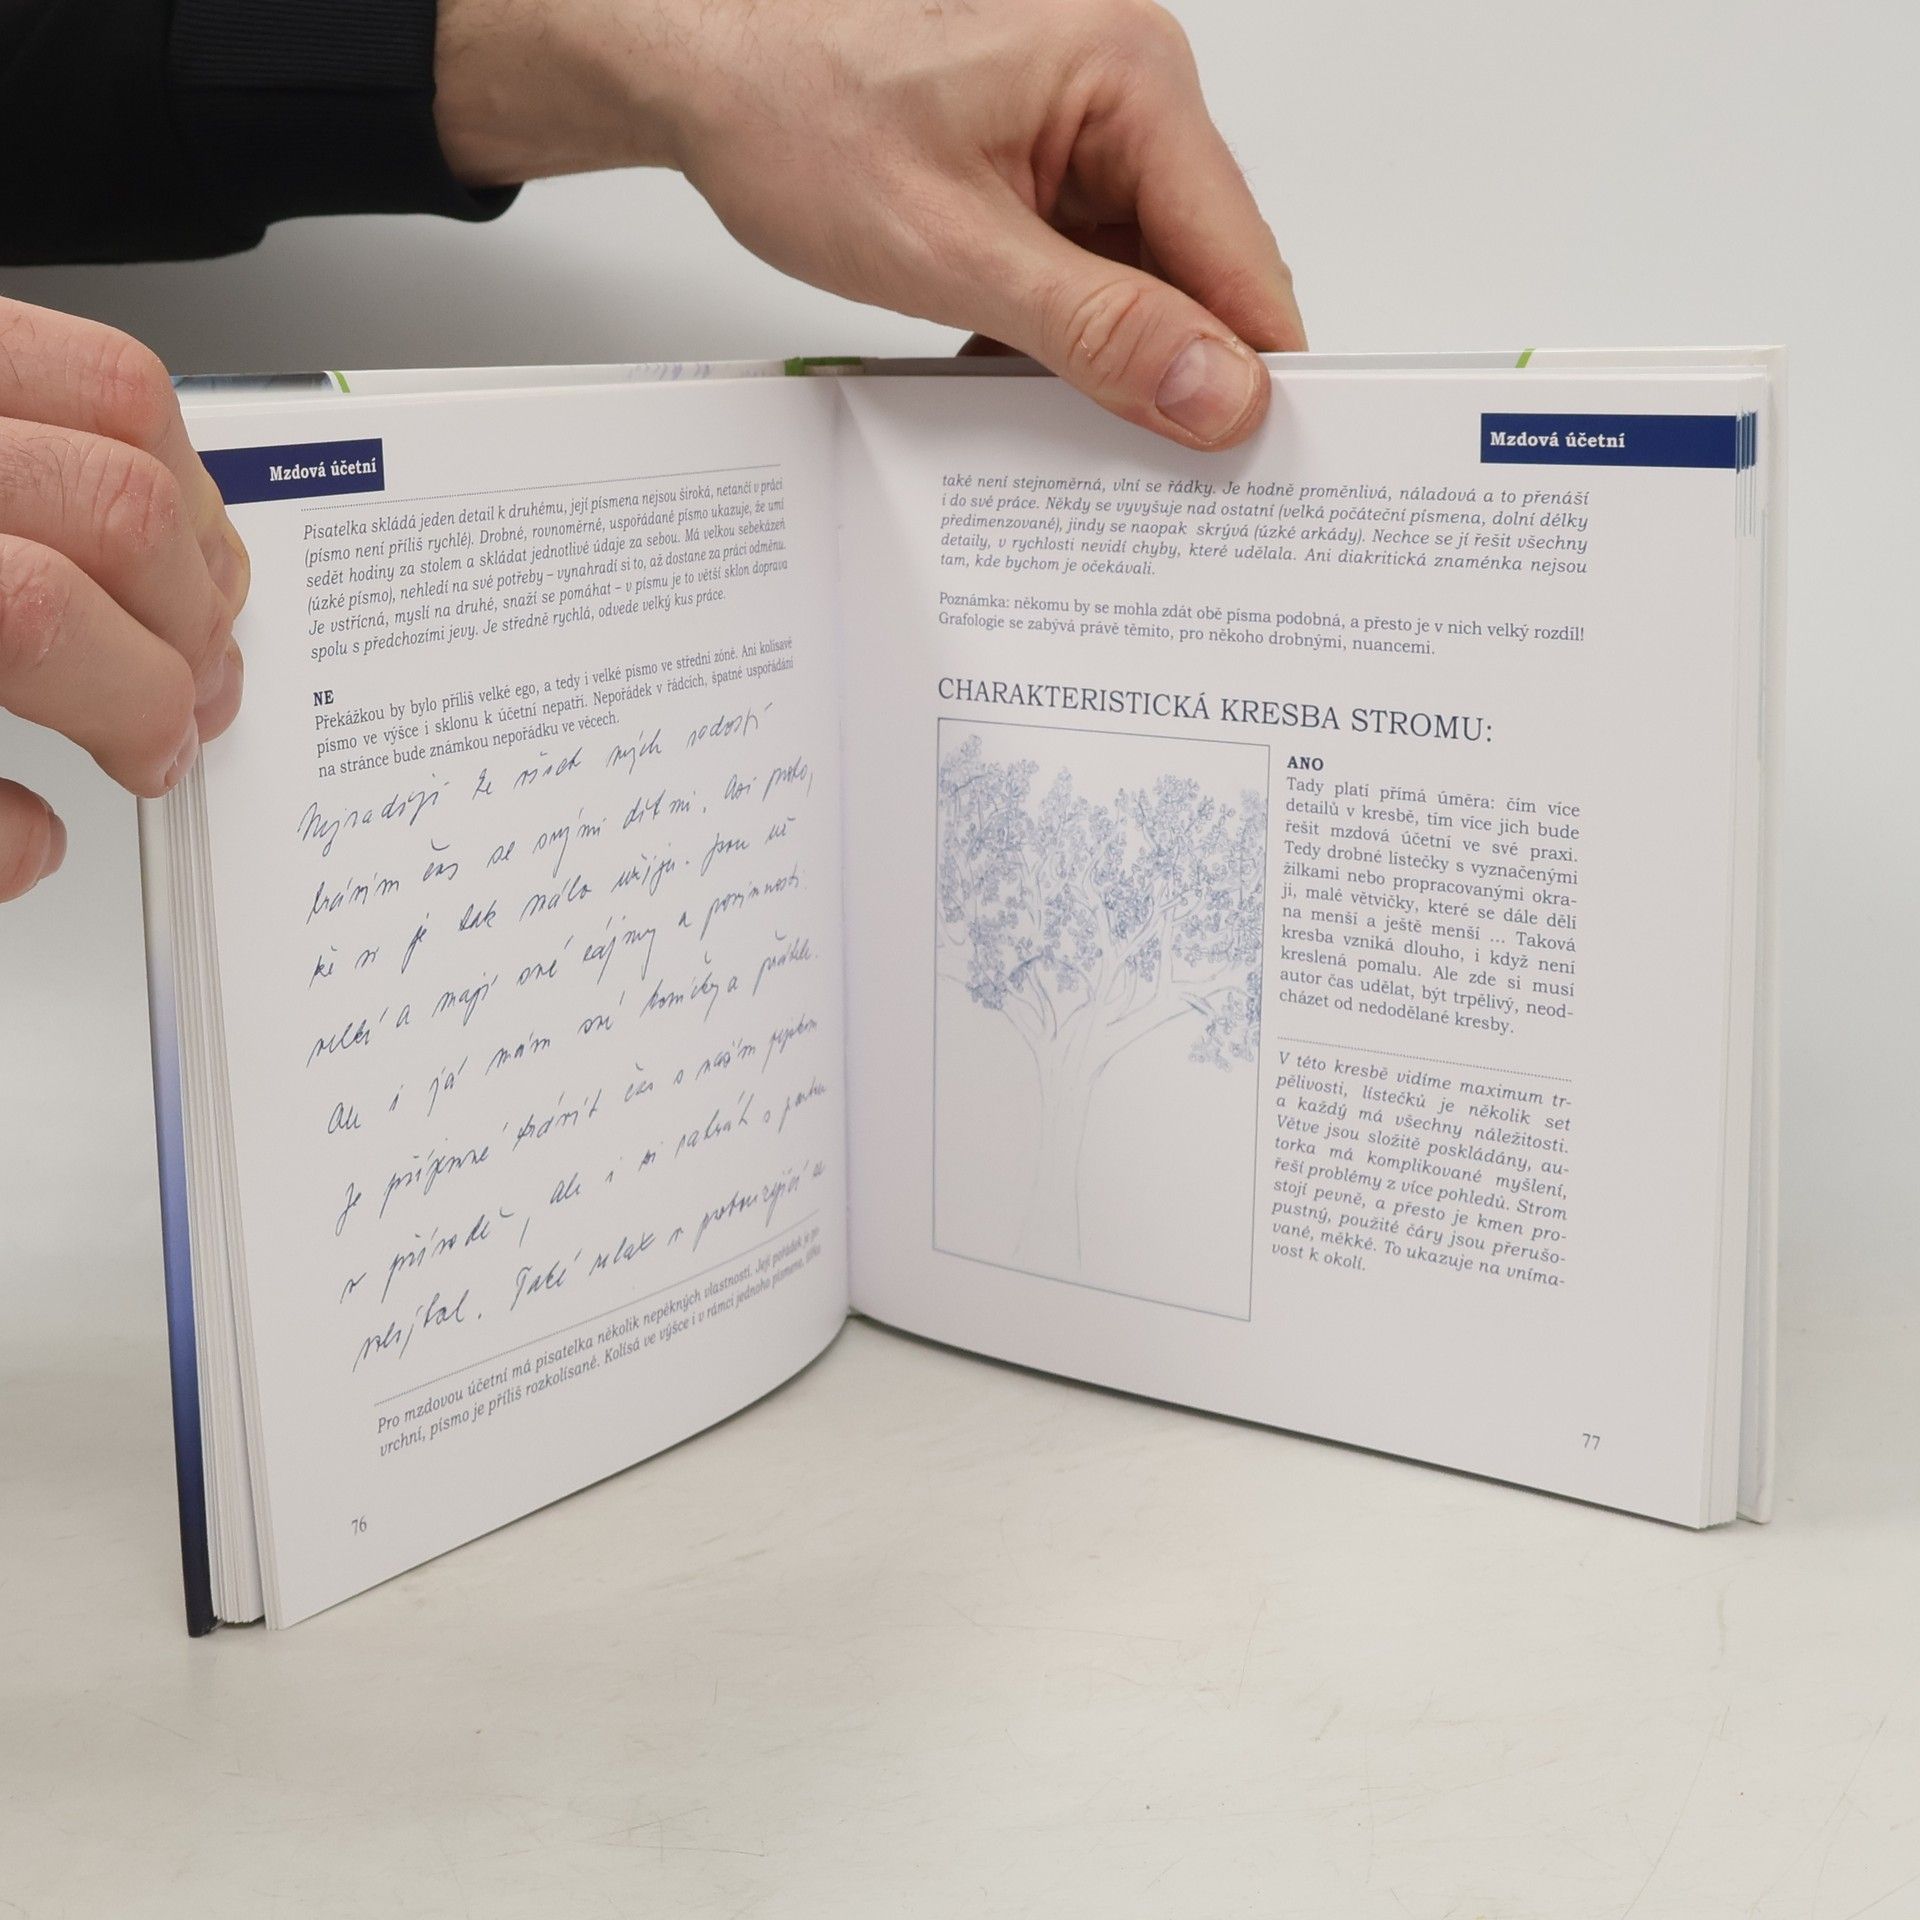 Mzdová účetní
Písatelka skládá jeden detail k druhému, její písmena nejsou široká, netančí v práci
(písmo není příliš rychlé). Drobné, rovnoměrné, uspořádané písmo ukazuje, že umí
sedět hodiny za stolem a skládat jednotlivé údaje za sebou. Má velkou sebekázeň
(úzké písmo), nehledí na své potřeby – vynahradí si to, až dostane za práci odměnu.
Je vstřícná, myslí na druhé, snaží se pomáhat – v písmu je to větší sklon doprava
spolu s předchozími jevy. Je středně rychlá, odvede velký kus práce.
NE
Překážkou by bylo příliš velké ego, a tedy i velké písmo ve střední zóně. Ani kolísavé
písmo ve výšce i sklonu k účetní nepatří. Nepořádek v řádcích, špatné uspořádání
na stránce bude známkou nepořádku ve věcech.
Nejraději ze všech mých radostí
trávím čas se svými dětmi. Asi proto,
že si je tak málo užiju. Jsou už
velké a mají své zájmy a povinnosti.
Ale i já mám své koníčky a přátele.
Je příjemné trávit čas s naším pejskem
v přírodě, ale i si zahrát s partou
volejbal. Také relax v
Pro mzdovou účetní má pisatelka několik nepěkných vlastností. Její pořádek je po-
vrchní, písmo je příliš rozkolísané. Kolísá ve výšce i v rámci jednoho písmena, šířka
76
Mzdová účetní
také není stejnoměrná, vlní se řádky. Je hodně proměnlivá, náladová a to přenáší
i do své práce. Někdy se vyvyšuje nad ostatní (velká počáteční písmena, dolní délky
předimenzované), jindy se naopak skrývá (úzké arkády). Nechce se jí řešit všechny
detaily, v rychlosti nevidí chyby, které udělala. Ani diakritická znaménka nejsou
tam, kde bychom je očekávali.
Poznámka: někomu by se mohla zdát obě písma podobná, a přesto je v nich velký rozdíl!
Grafologie se zabývá právě těmito, pro někoho drobnými, nuancemi.
CHARAKTERISTICKÁ KRESBA STROMU:
ANO
Tady platí přímá úměra: čím více
detailů v kresbě, tím více jich bude
řešit mzdová účetní ve své praxi.
Tedy drobné lístečky s vyznačenými
žilkami nebo propracovanými okra-
ji, malé větvičky, které se dále dělí
na menší a ještě menší ... Taková
kresba vzniká dlouho, i když není
kreslená pomalu. Ale zde si musí
autor čas udělat, být trpělivý, neod-
cházet od nedodělané kresby.
V této kresbě vidíme maximum tr-
pělivosti, lístečků je několik set
a každý má všechny náležitosti.
Větve jsou složitě poskládány, au-
torka má komplikované myšlení,
řeší problémy z více pohledů. Strom
stojí pevně, a přesto je kmen pro-
pustný, použité čáry jsou přerušo-
vané, měkké. To ukazuje na vníma-
vost k okolí.
77